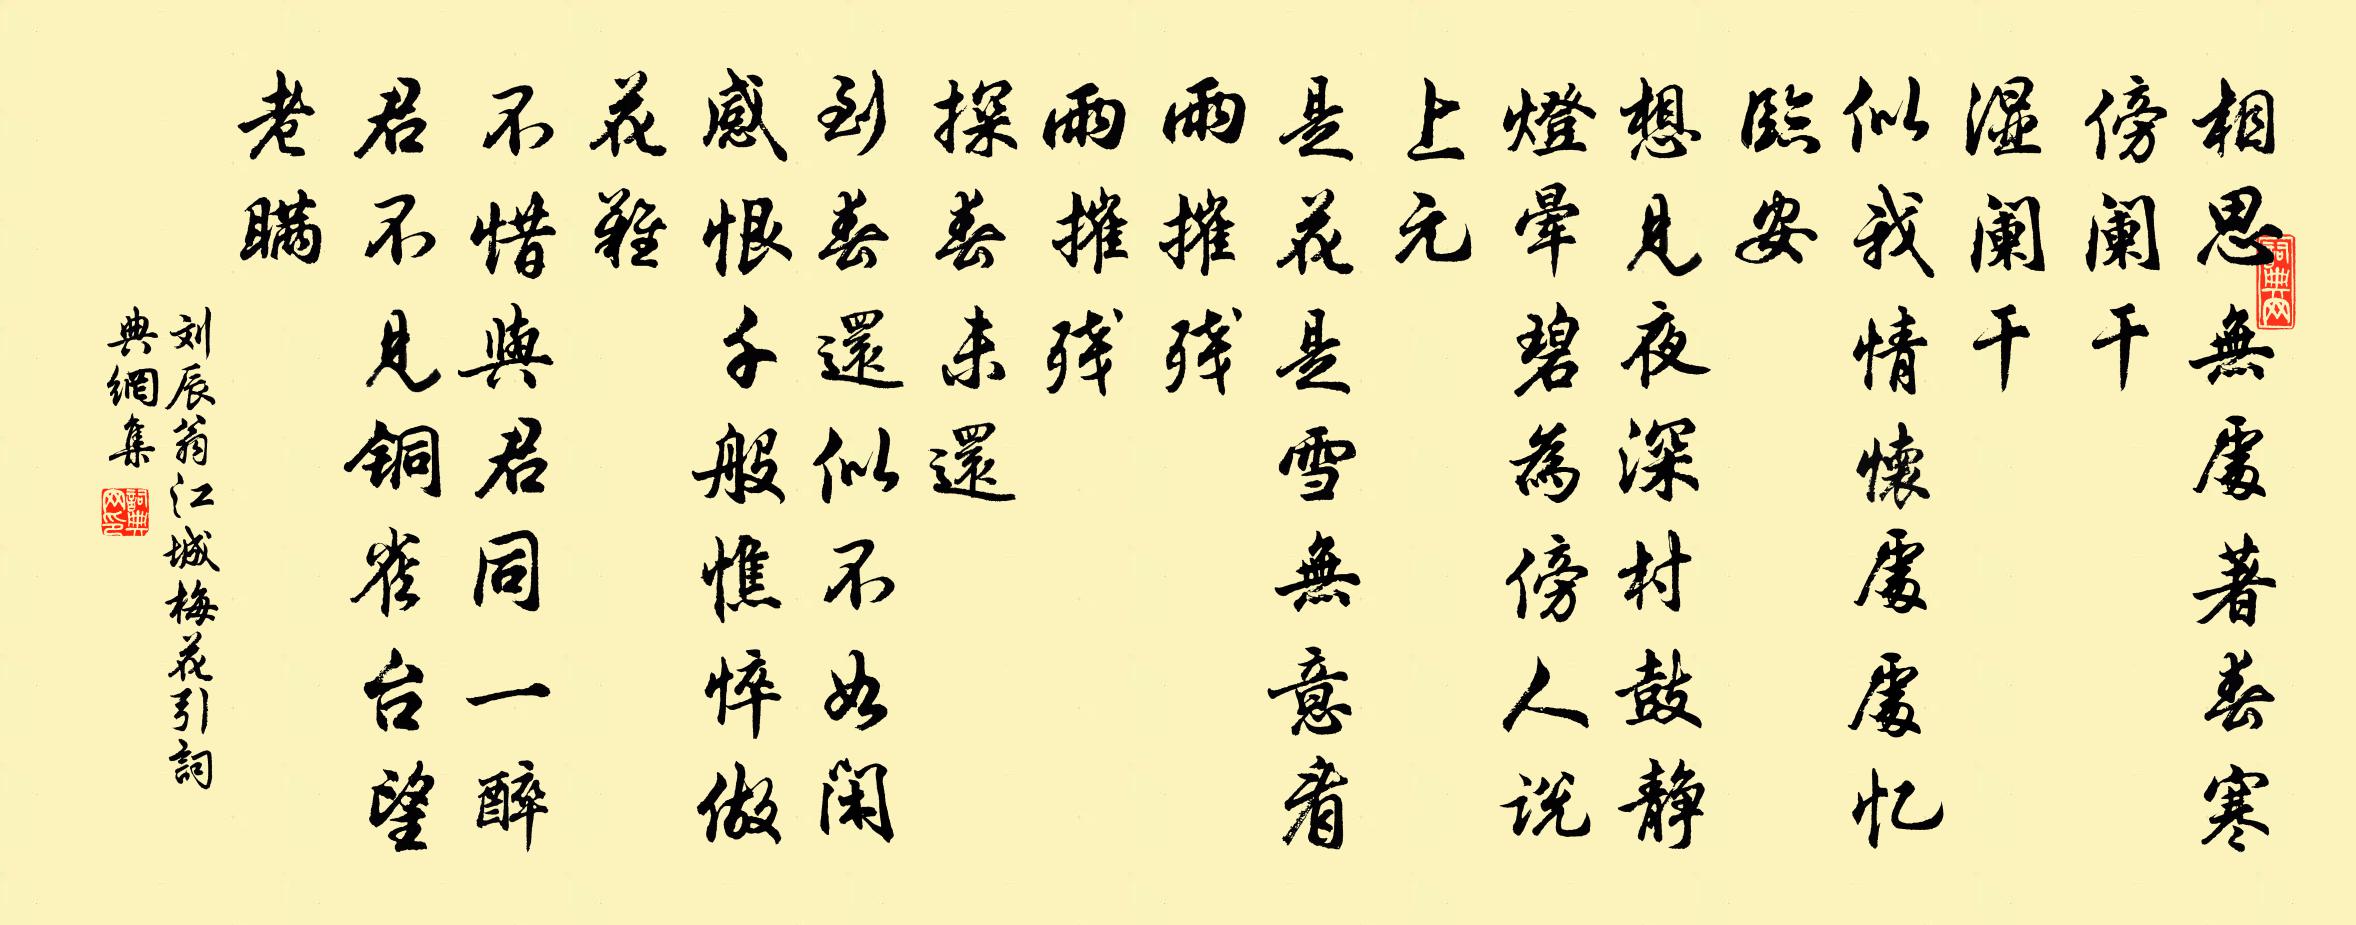 相思無處著春寒
傍阑干
湿阑干
似我情懷處處忆
臨安
想見夜深村鼓静
燈暈碧為傍人说
上元
是花是雪無意看
雨摧残
雨摧残
探春未還
到春還似不如闲
感恨千般憔悴做
花難
不惜與君同一醉
君不見铜雀台望
老瞒
刘辰翁江城梅花引詞
典網集
詞典网
詞典网印